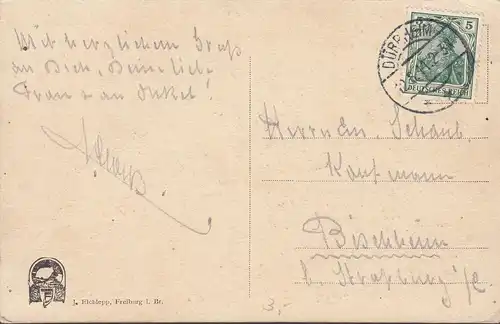 Mit herzlichem Gruß
an Dich, Deine liebe
Frau u an Onkel!
5
DÜRRHEIM
DEUTSCHES REICH
Herrn Em. Schaub
Kaufmann
Bischheim
b. Straßburg i/E
3,-
J. Elchlepp, Freiburg i. Br.